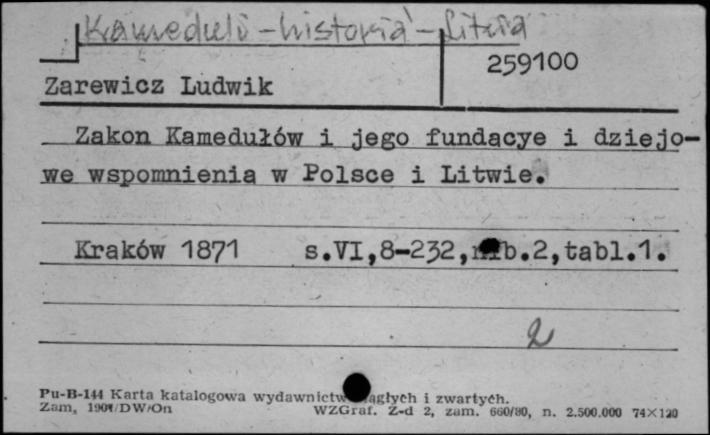 Kameduli - historia - Litwa
259100
Zarewicz Ludwik
Zakon Kamedułów i jego fundacye i dziejo-
we wspomnienia w Polsce i Litwie.
Kraków 1871 s.VI,8-232,nlb.2,tabl.1.
2
Pu-B-144 Karta katalogowa wydawnictw ciągłych i zwartych.
Zam, 1901/DW/On WZGraf. Z-d 2, zam. 660/80, n. 2.500.000 74×120